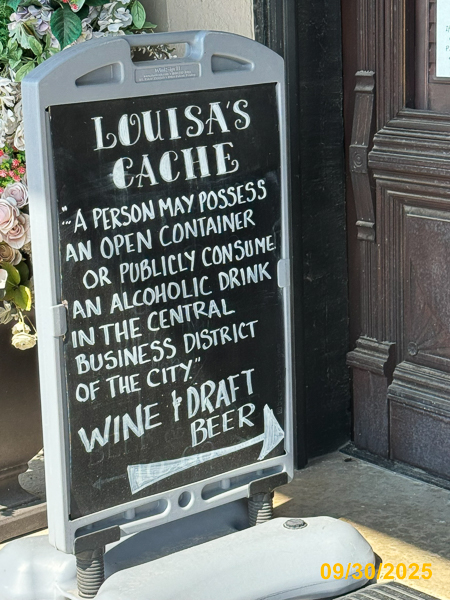 LOUISA'S
CACHE
"...A PERSON MAY POSSESS
AN OPEN CONTAINER
OR PUBLICLY CONSUME
AN ALCOHOLIC DRINK
IN THE CENTRAL
BUSINESS DISTRICT
OF THE CITY."
WINE & DRAFT
BEER
09/30/2025